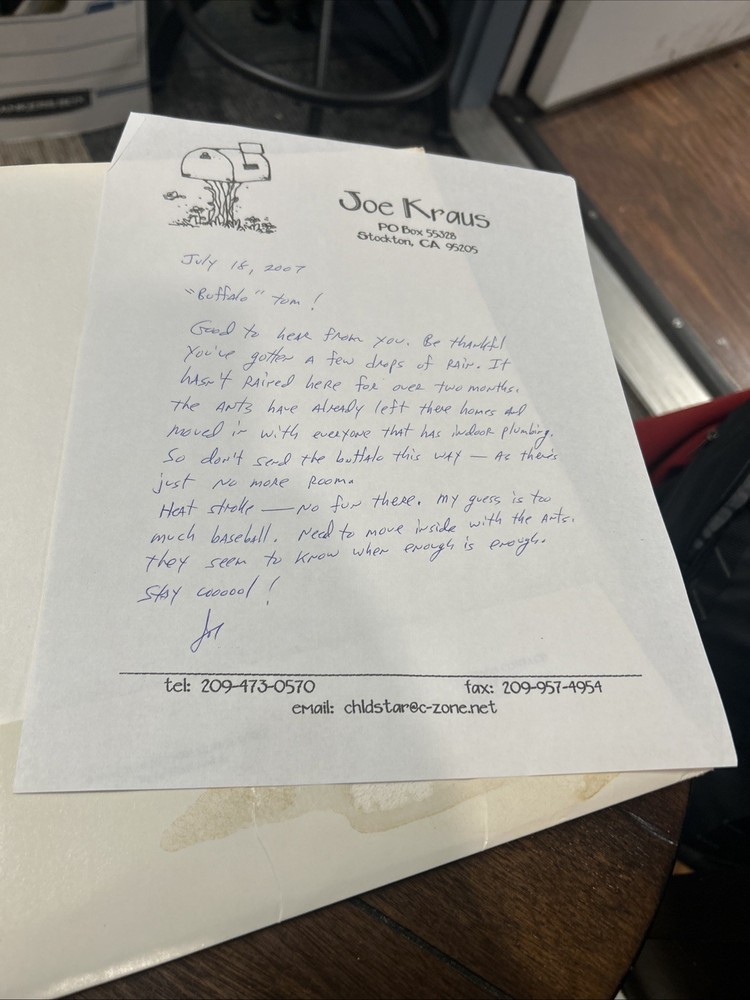 Joe Kraus
PO Box 55328
Stockton, CA 95205
July 18, 2007
"Buffalo" Tom!
Good to hear from you. Be thankful
you've gotten a few drops of rain. It
hasn't rained here for over two months.
The ants have already left there homes and
moved in with everyone that has indoor plumbing.
So don't send the buffalo this way — as there's
just no more room.
Heat stroke — No fun there. My guess is too
much baseball. Need to move inside with the ants.
They seem to know when enough is enough.
Stay cooool!
Joe
tel: 209-473-0570 fax: 209-957-4954
email: chldstar@c-zone.net